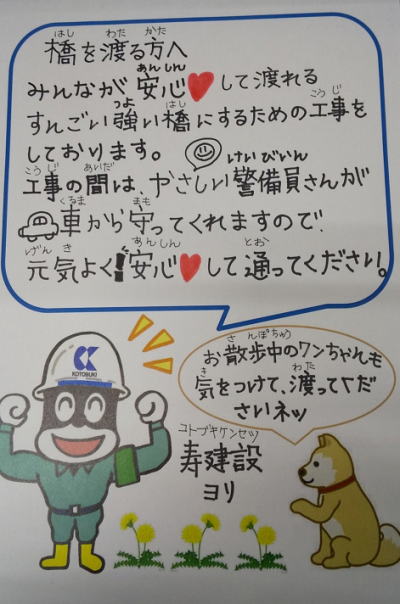 橋を渡る方へ
みんなが安心して渡れる
すんごい強い橋にするための工事を
しております。
工事の間は、やさしい警備員さんが
車から守ってくれますので、
元気よく!安心して通ってください。
お散歩中のワンちゃんも
気をつけて、渡ってくだ
さいネッ
KOTOBUKI
寿建設
ヨリ